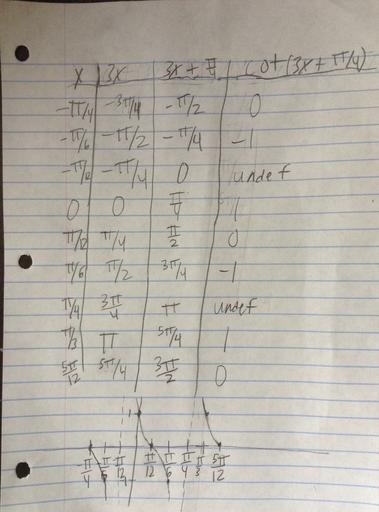 x 3x 3x + π/4 cot(3x + π/4)
-π/4 -3π/4 -π/2 0
-π/6 -π/2 -π/4 -1
-π/12 -π/4 0 undef
0 0 π/4 1
π/12 π/4 π/2 0
π/6 π/2 3π/4 -1
π/4 3π/4 π undef
π/3 π 5π/4 1
5π/12 5π/4 3π/2 0
-π/4 -π/6 -π/12 π/12 π/6 π/4 π/3 5π/12